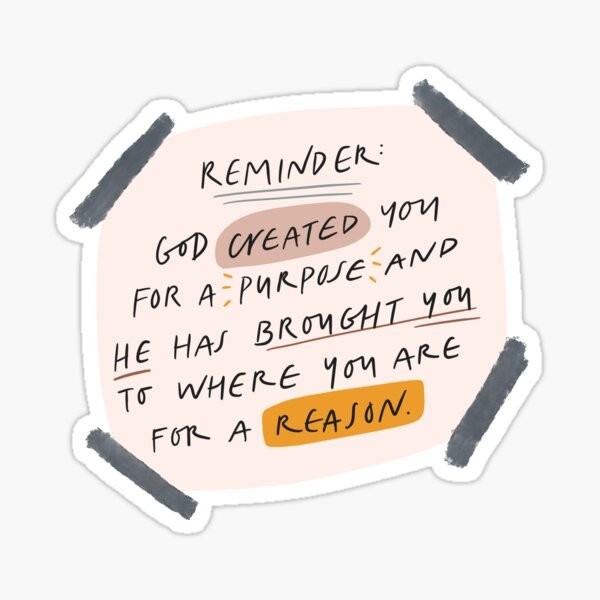 REMINDER:
GOD CREATED YOU
FOR A PURPOSE AND
HE HAS BROUGHT YOU
TO WHERE YOU ARE
FOR A REASON.